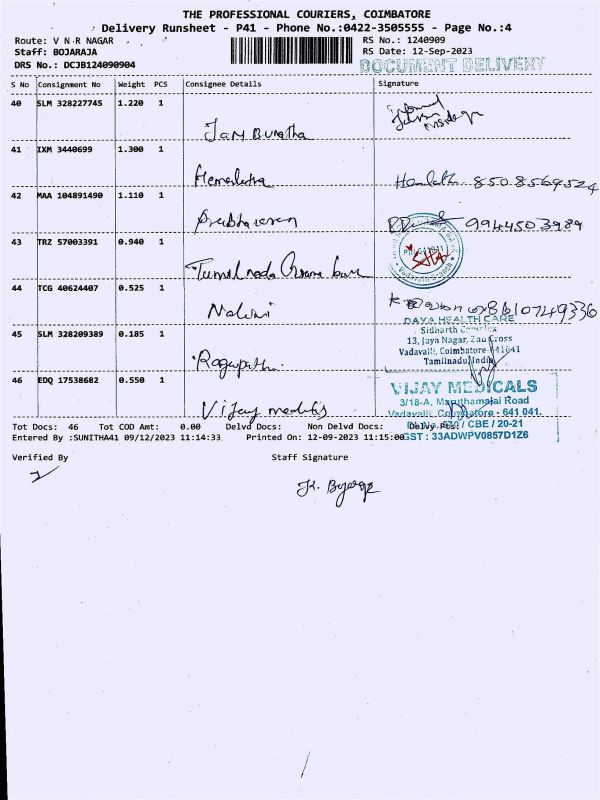 THE PROFESSIONAL COURIERS, COIMBATORE
Delivery Runsheet - P41 - Phone No.:0422-3505555 - Page No.:4
Route: V N R NAGAR RS No.: 1240909
Staff: BOJARAJA RS Date: 12-Sep-2023
DRS No.: DCJB124090904 DOCUMENT DELIVERY
S No Consignment No Weight PCS Consignee Details Signature
40 SLM 328227745 1.220 1
41 IXM 3440699 1.300 1
Hemalatha 8508569524
42 MAA 104891490 1.110 1
Prabhakaran 9944503989
43 TRZ 57003391 0.940 1
Tamil nadu Grama bank
44 TCG 40624407 0.525 1
Nalini 8610749336
DAYA HEALTH CARE
Sidharth Complex
45 SLM 328209389 0.185 1 13, Jaya Nagar, 2nd Cross
Vadavalli, Coimbatore-641041
Tamilnadu, India
Ragupathi
46 EDQ 17538682 0.550 1 VIJAY MEDICALS
3/18-A, Maruthamalai Road
Vijay medicals Vadavalli, Coimbatore - 641 041.
Tot Docs: 46 Tot COD Amt: 0.00 Delvd Docs: Non Delvd Docs: Delvy Pos: / CBE / 20-21
Entered By :SUNITHA41 09/12/2023 11:14:33 Printed On: 12-09-2023 11:15:00 GST : 33ADWPV0857D1Z6
Verified By Staff Signature